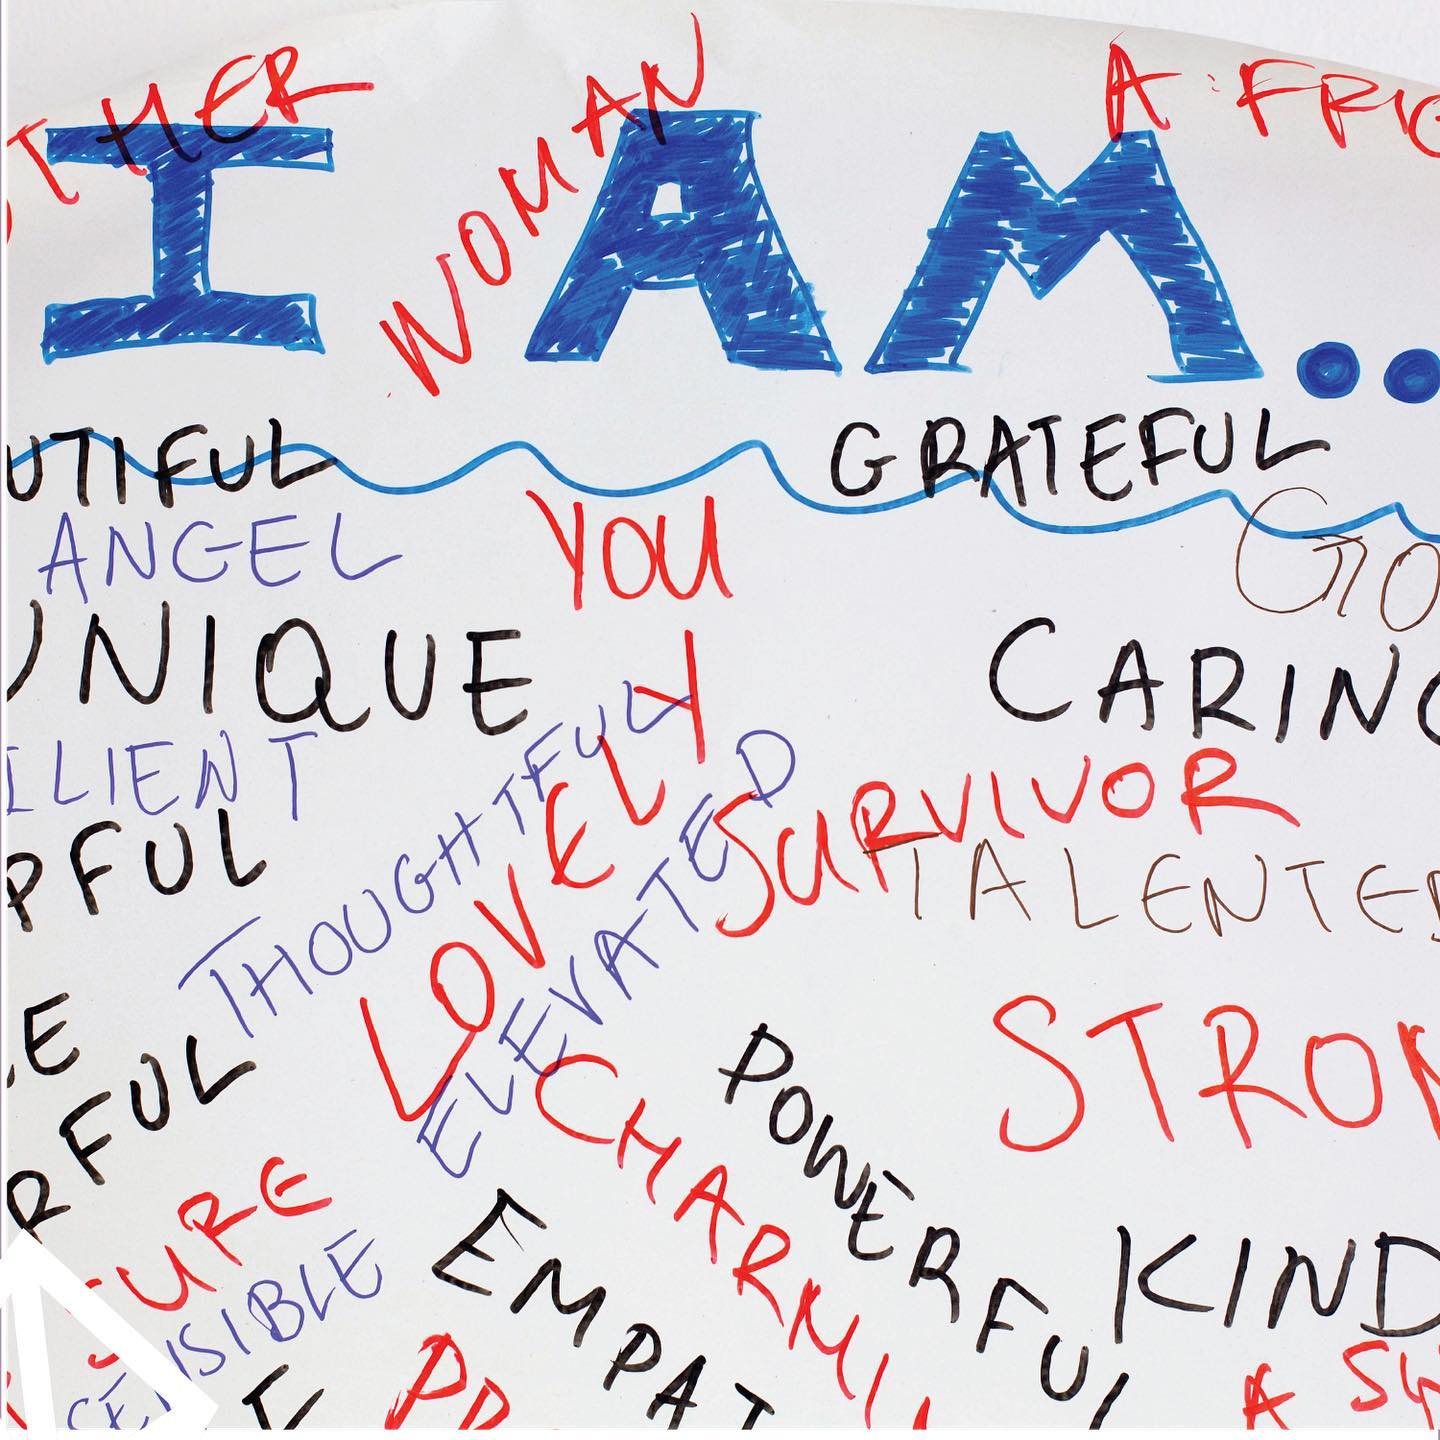 OTHER
WOMAN
A FRIE
I AM..
UTIFUL
GRATEFUL
ANGEL
YOU
GO
UNIQUE
CARING
ILIENT
THOUGHTFUL
LOVELY
ELEVATED
SURVIVOR
PFUL
TALENTED
E
RFUL
STRON
CHARMI
POWERFUL
SURE
SENSIBLE
EMPAT
KIND